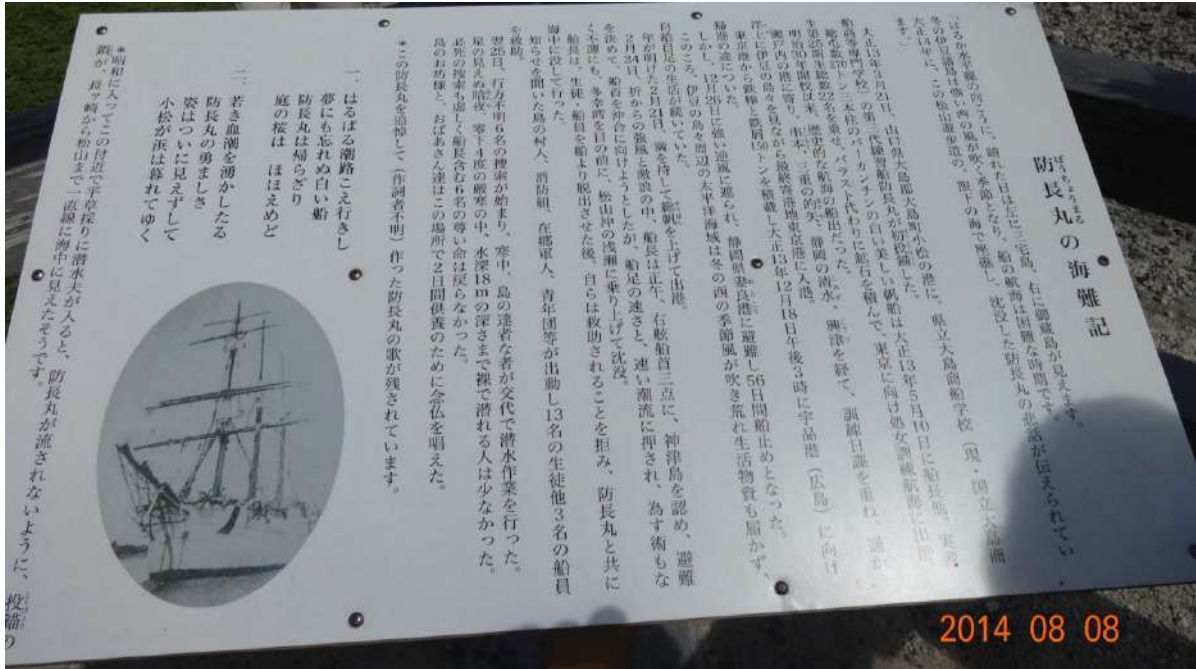 防長丸の海難記
ぼうちょうまる
「はるか水平線の向こうに、晴れた日は左に三宅島、右に御蔵島が見えます。
冬の伊豆諸島は強い西の風が吹く季節となり、船の航海は困難な時期です。
大正14年に、この松山遊歩道の、眼下の海で座礁し、沈没した防長丸の悲話が伝えられてい
ます。」
大正13年3月21日、山口県大島郡大島町小松の港に、県立大島商船学校（現・国立大島商
船高等専門学校）の第三代練習船防長丸が初投錨した。
総屯数270トン三本柱のバーカンチンの白い美しい帆船は大正13年5月10日に船長他、実習
生第25期生総数22名を乗せ、バラスト代わりに鉱石を積んで、東京に向け処女訓練航海に出港
明治30年開校以来、歴史的な航海の船出だった。
瀬戸内の港に寄り、串本、三重の的矢、静岡の清水、興津を経て、訓練日課を重ね、遥か
洋上に伊豆の島々を見ながら最終寄港地東京港に入港。
東京港から鉄棒と鉄屑150トンを積載し大正13年12月18日午後3時に宇品港（広島）に向け
帰港の途についた。
しかし、12月26日に強い逆風に遮られ、静岡県妻良港に避難し56日間船止めとなった。
このころ、伊豆の島々周辺の太平洋海域は冬の西の季節風が吹き荒れ生活物資も届かず、
自給自足の生活が続いていた。
年が明けた2月21日、満を持して総帆を上げて出港。
2月24日、折からの強風と激浪の中、船長は正午、右舷船首三点に、神津島を認め、避難
を決めて、船首を沖合に向けようとしたが、船足の速さと、速い潮流に押され、為す術もな
く不運にも、多幸湾を目の前に、松山沖の浅瀬に乗り上げて沈没。
船長は、生徒・船員を船より脱出させた後、自らは救助されることを拒み、防長丸と共に
海中に没して行った。
知らせを聞いた島の村人、消防組、在郷軍人、青年団等が出動し13名の生徒他3名の船員
を救助。
翌25日、行方不明6名の捜索が始まり、寒中、島の達者な者が交代で潜水作業を行った。
星の見えぬ暗夜、零下4度の厳寒の中、水深18mの深さまで裸で潜れる人は少なかった。
必死の捜索も虚しく船長含む6名の尊い命は戻らなかった。
島のお坊様と、おばあさん達はこの場所で2日間供養のために念仏を唱えた。
＊この防長丸を追悼して（作詞者不明）作った防長丸の歌が残されています。
一、はるばる潮路こえ行きし
夢にも忘れぬ白い船
防長丸は帰らざり
庭の桜は ほほえめど
二、若き血潮を湧かしたる
防長丸の勇ましさ
姿はついに見えずして
小松が浜は暮れてゆく
＊昭和に入ってこの付近で平草採りに潜水夫が入ると、防長丸が流されないように、投錨の
鎖が、長ッ崎から松山まで一直線に海中に見えたそうです。
2014 08 08